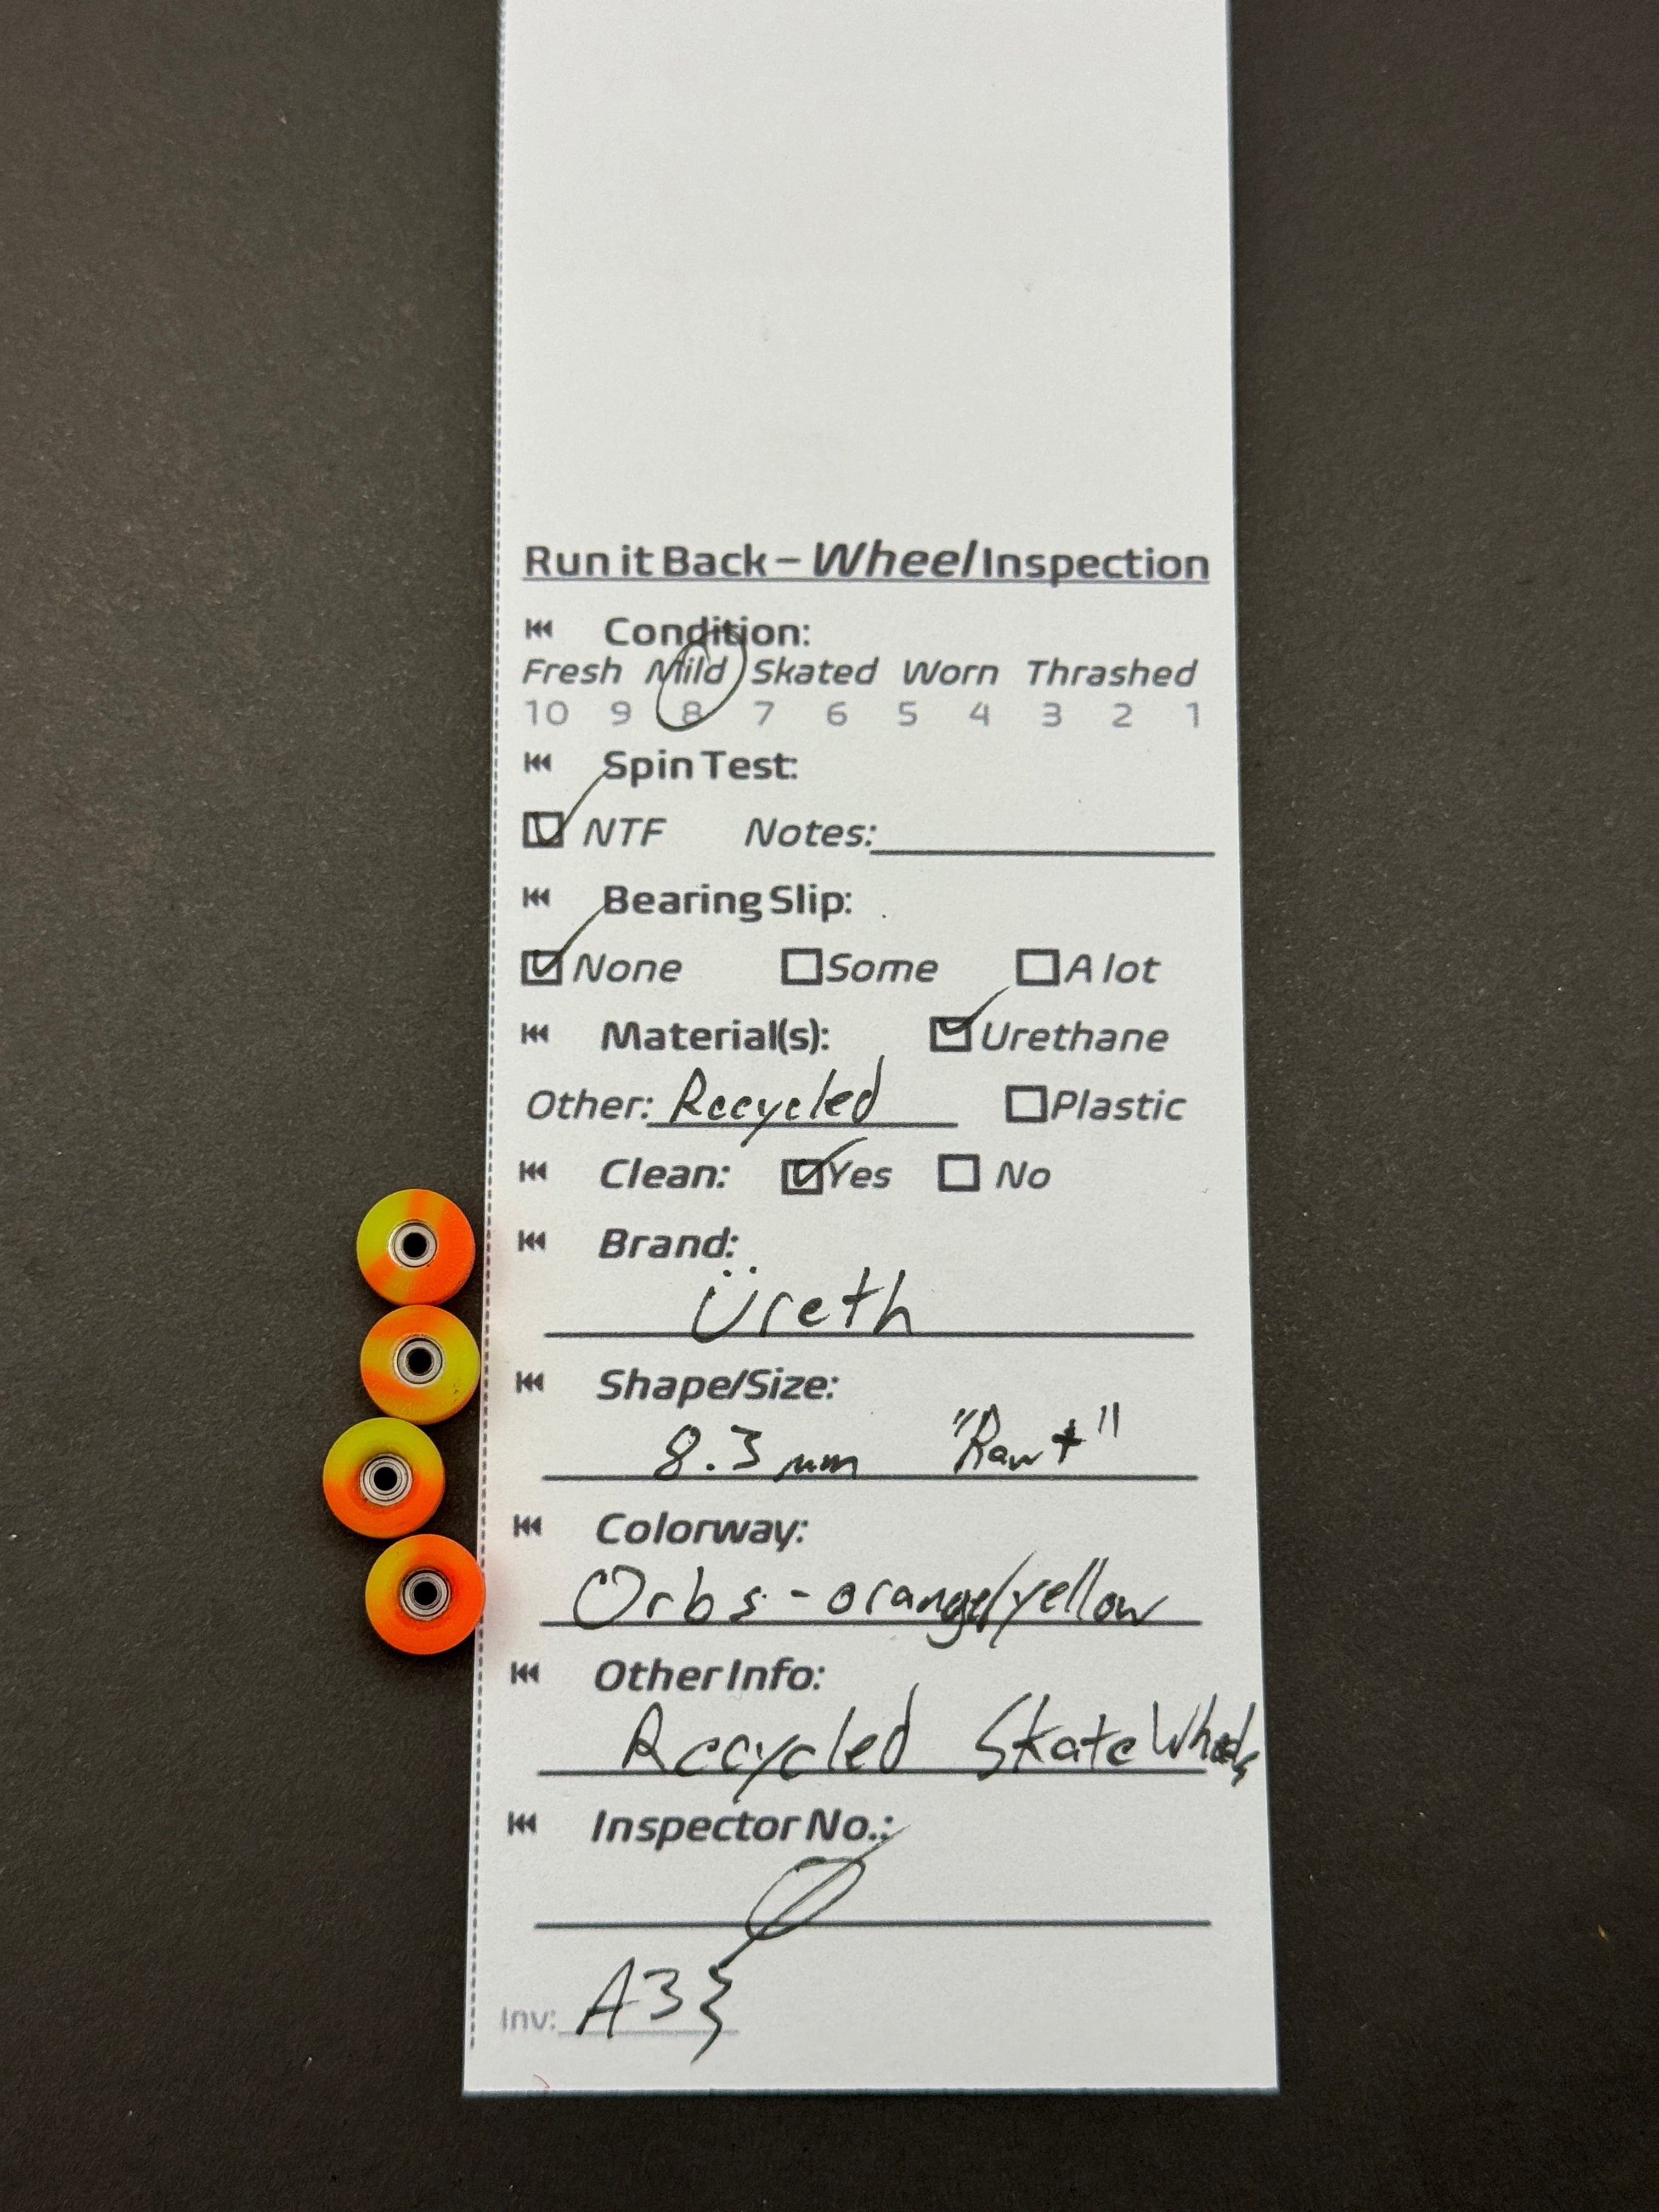 Run it Back – Wheel Inspection
Condition:
Fresh Mild Skated Worn Thrashed
10 9 8 7 6 5 4 3 2 1
Spin Test:
NTF Notes:
Bearing Slip:
None Some A lot
Material(s): Urethane
Other: Recycled Plastic
Clean: Yes No
Brand:
Üreth
Shape/Size:
8.3 mm "Raw+"
Colorway:
Orbs - orange/yellow
Other Info:
Recycled Skate Wheels
Inspector No.:
Inv: